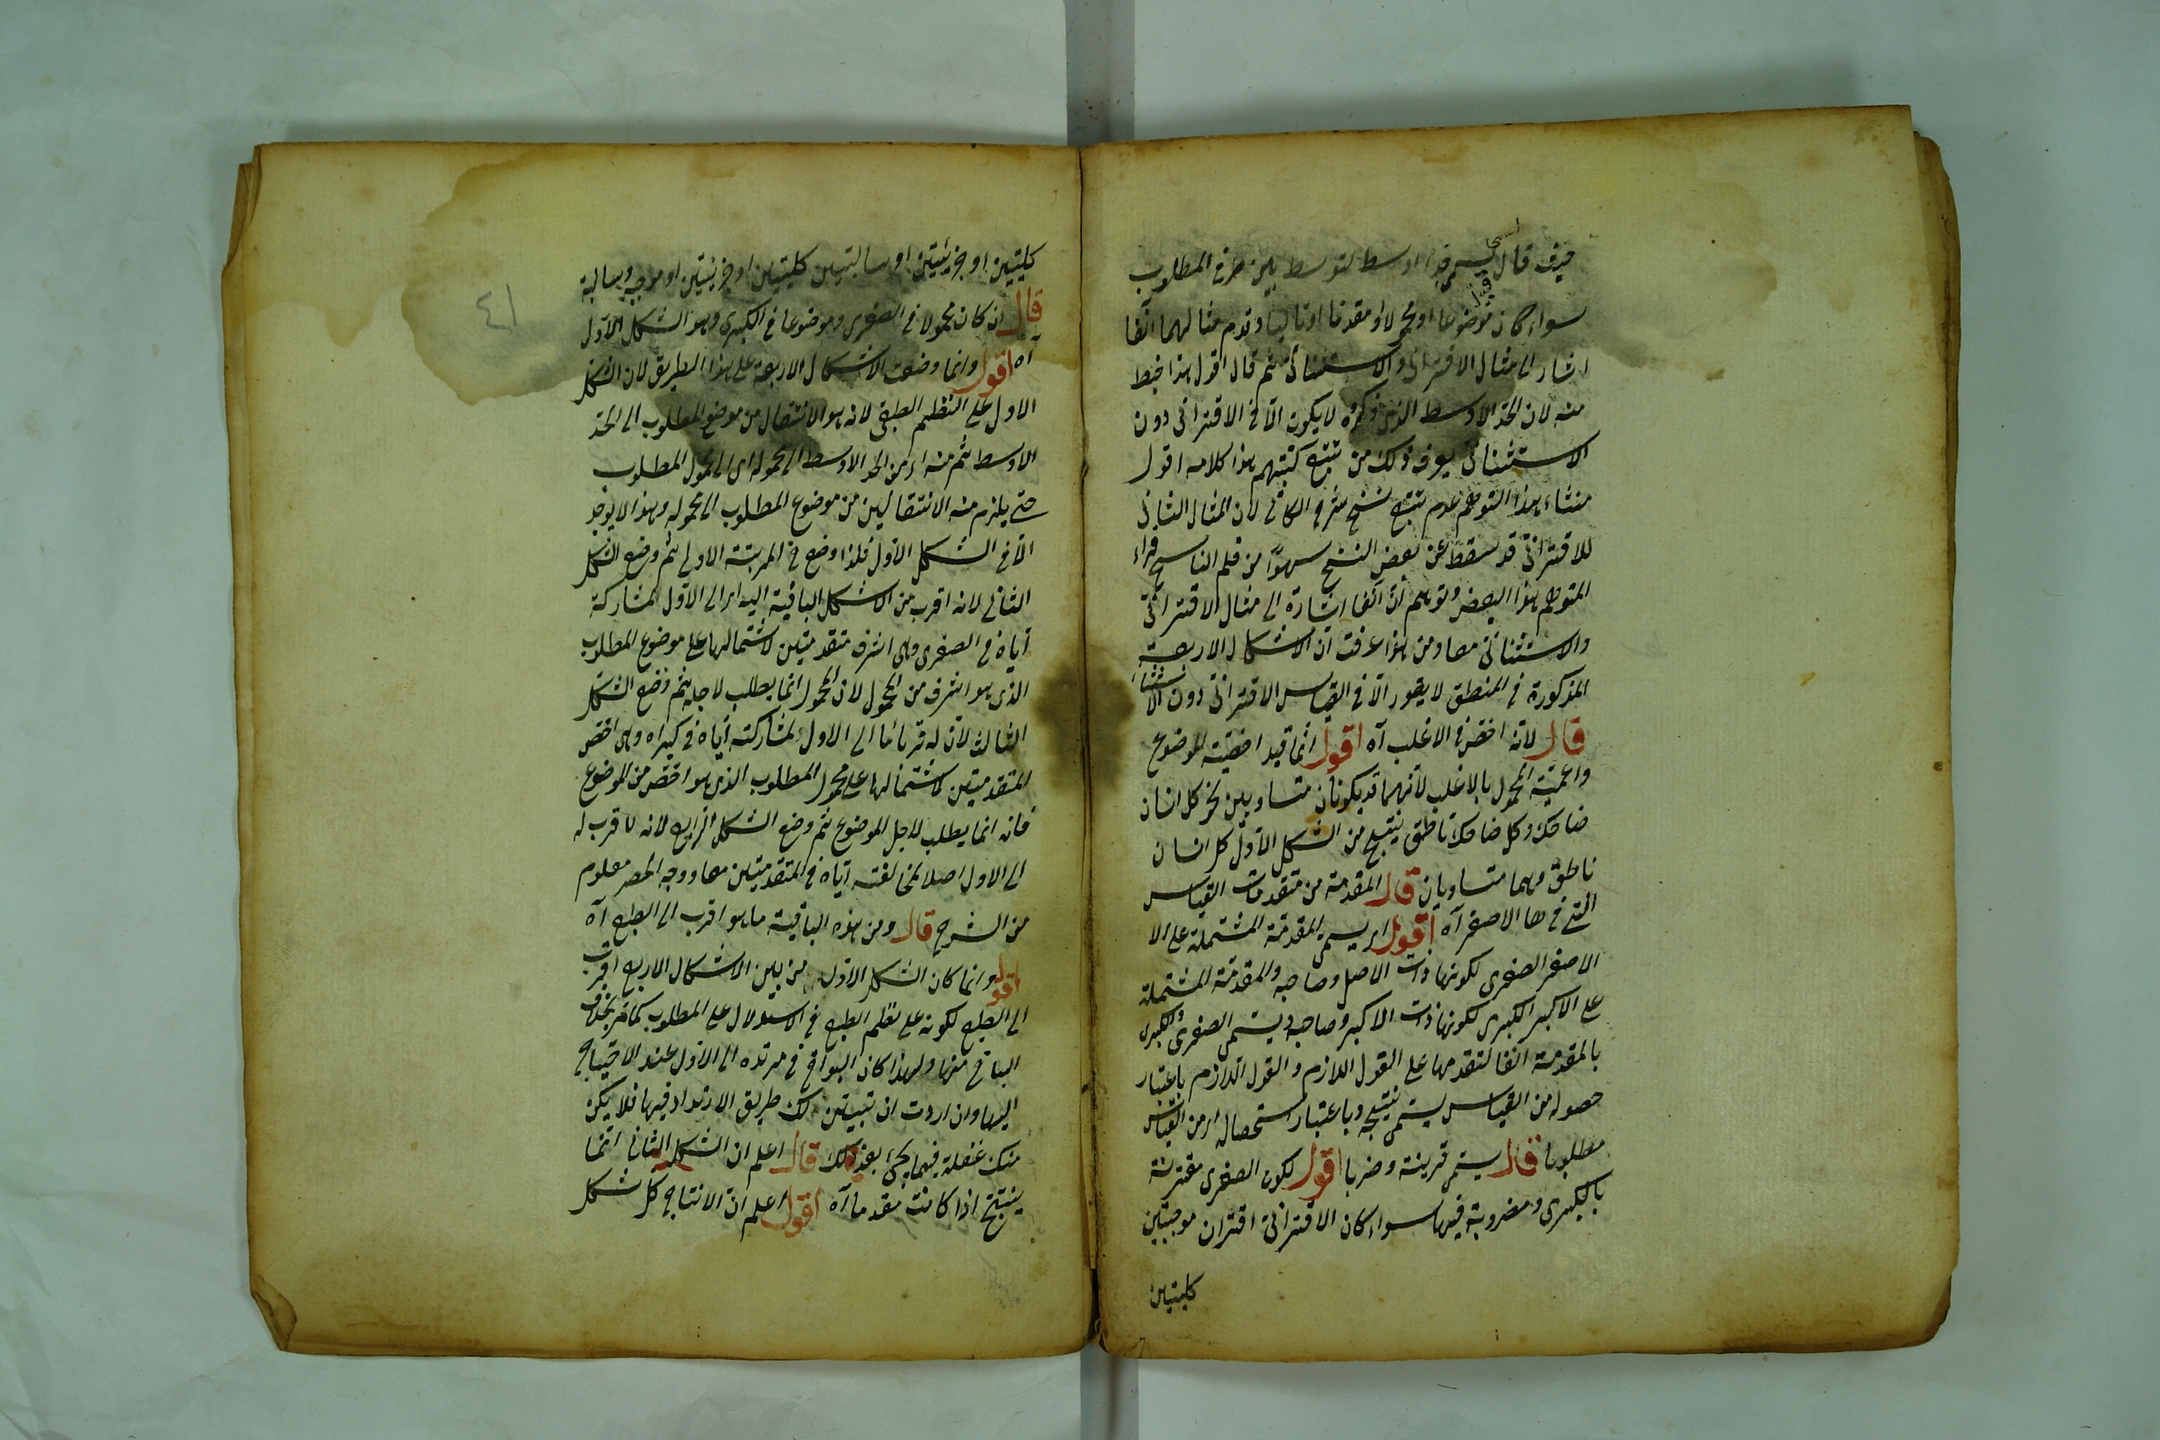 حيث قال يسمى حدا اوسط لتوسطه بين طرفي المطلوب
سواء كان موضوعا او محمولا او مقدما او تاليا وقدم مثالهما آنفا
اشار الى مثال الاقترانى والاستثنائى ثم قال اقول هذا خبط
منه لان الحد الاوسط الذى ذكره لا يكون الا فى الاقترانى دون
الاستثنائى يعرف ذلك من تتبع كتبهم هذا كلامه اقول
منشاء هذا التوهم عدم تتبع نسخ شرح الكاتى لان المثال الثانى
للاقترانى قد سقط عن بعض النسخ سهوا من قلم الناسخ فراء
المتوهم هذا البعض وتوهم ان آنفا اشارة الى مثال الاقترانى
والاستثنائى معا ومن هذا عرفت ان الاشكال الاربعة
المذكورة فى المنطق لا يتصور الا فى القياس الاقترانى دون الاستثنا
قال لانه اخص فى الاغلب آه اقول انما قيد اخصية الموضوع
واعمية المحمول بالاغلب لانهما قد يكونان متساويين نحو كل انسان
ضاحك وكل ضاحك ناطق ينتج من الشكل الاول كل انسان
ناطق وهما متساويان قال المقدمة من مقدمات القياس
التى فيها الاصغر آه اقول اى يسمى المقدمة المشتملة على الا
الاصغر الصغرى لكونها ذات الاصغر وصاحبه والمقدمة المشتملة
على الاكبر الكبرى لكونها ذات الاكبر وصاحبه ويسمى الصغرى والكبرى
بالمقدمة آنفا لتقدمها على القول اللازم والقول اللازم باعتبار
حصوله من القياس يسمى نتيجة وباعتبار استحصاله اى من القياس
مطلوبا قال يسمى قرينة وضربا اقول لكون الصغرى مقترنة
بالكبرى ومضروبة فيها سواء كان الاقترانى اقتران موجبتين
كليتين
٤١
كليتين او جزئيتين او سالبتين كليتين او جزئيتين او موجبة وسالبة
قال ان كان محمولا فى الصغرى وموضوعا فى الكبرى وهو الشكل الاول
آه اقول وانما وضعت الاشكال الاربعة على هذا الطريق لان الشكل
الاول على النظم الطبيعى لانه هو الانتقال من موضوع المطلوب الى الحد
الاوسط ثم منه اى من الحد الاوسط الى محموله اى الى محمول المطلوب
حتى يلزم منه الانتقال من موضوع المطلوب الى محموله وهذا لا يوجد
الا فى الشكل الاول فلذا وضع فى المرتبة الاولى ثم وضع الشكل
الثانى لانه اقرب من الاشكال الباقية اليه اى الى الاول لمشاركة
اياه فى الصغرى وهى اشرف متقدمتين لاشتمالها على موضوع المطلوب
الذى هو اشرف من المحمول لان المحمول انما يطلب لاجله ثم وضع الشكل
الثالث لان له قربا ما الى الاول لمشاركته اياه فى كبراه وهى اخص
المتقدمتين لاشتمالها على محمول المطلوب الذى هو اخص من الموضوع
فانه انما يطلب لاجل الموضوع ثم وضع الشكل الرابع لانه لا قرب له
الى الاول اصلا لمخالفته اياه فى المتقدمتين معا ووجه الحصر معلوم
من الشرح قال ومن هذه الباقية ما هو اقرب الى الطبع آه
اقول وانما كان الشكل الاول من بين الاشكال الاربع اقرب
الى الطبع لكونه على نظم الطبع فى الاستدلال على المطلوب كما مر بخلاف
الباقى منها ولهذا كان البواقى فى مرتده الى الاول عند الاحتياج
اليها وان اردت ان تبيتن لك طريق الارتداد فيها فلا يكن
منك غفلة فيما يجئ بعد ذلك قال اعلم ان الشكل الثانى انما
ينتج اذا كانت مقدماآه اقول اعلم ان الانتاج كل شكل